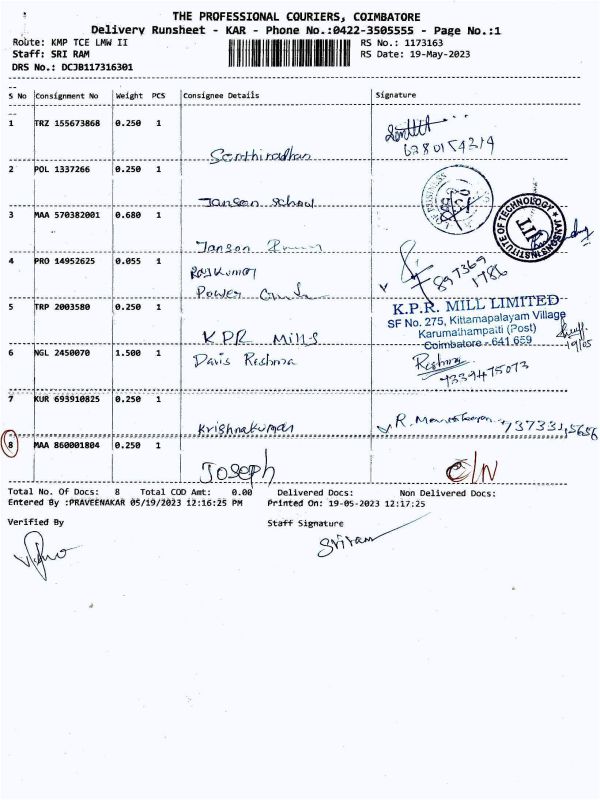 THE PROFESSIONAL COURIERS, COIMBATORE
Delivery Runsheet - KAR - Phone No.:0422-3505555 - Page No.:1
Route: KMP TCE LMW II RS No.: 1173163
Staff: SRI RAM RS Date: 19-May-2023
DRS No.: DCJB117316301
S No Consignment No Weight PCS Consignee Details Signature
1 TRZ 155673868 0.250 1
Senthiradhan 6280154214
2 POL 1337266 0.250 1
Janson School
3 MAA 570382001 0.680 1
Janson
JANSONS INSTITUTE OF TECHNOLOGY
JIT
4 PRO 14952625 0.055 1 Rajkumar
Power 897369
1786
5 TRP 2003580 0.250 1
KPR Mills
K.P.R. MILL LIMITED
SF No. 275, Kittamapalayam Village
Karumathampatti (Post)
Coimbatore - 641 659
19/05
6 NGL 2450070 1.500 1 Davis Reshma Reshma
9339475073
7 KUR 693910825 0.250 1
Krishnakumar R.
8 MAA 860001804 0.250 1
Joseph C/N
Total No. Of Docs: 8 Total COD Amt: 0.00 Delivered Docs: Non Delivered Docs:
Entered By :PRAVEENAKAR 05/19/2023 12:16:25 PM Printed On: 19-05-2023 12:17:25
Verified By Staff Signature
Sriram